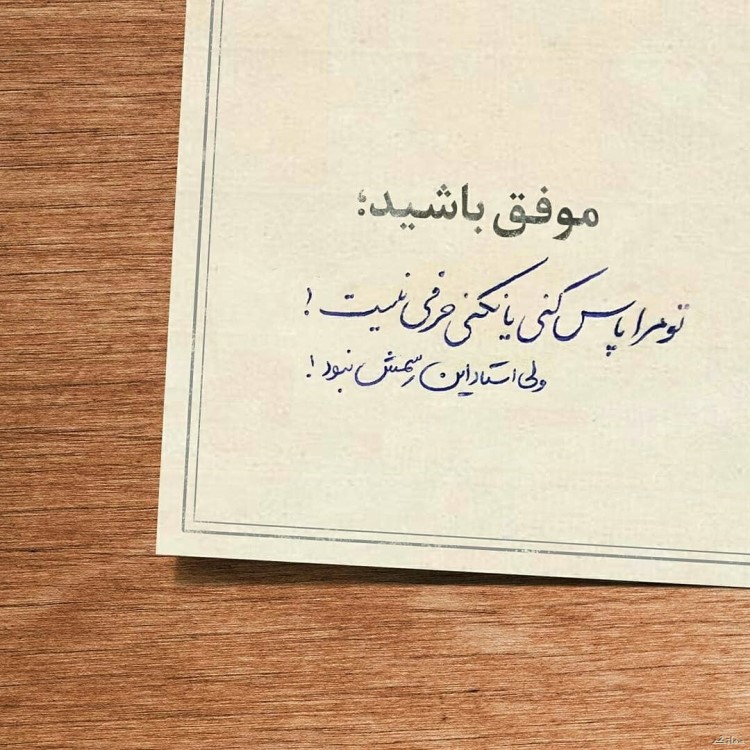 موفق باشید؛
تو مرا پاس کنی یا نکنی حرفی نیست !
ولی استاد این رسمش نبود !